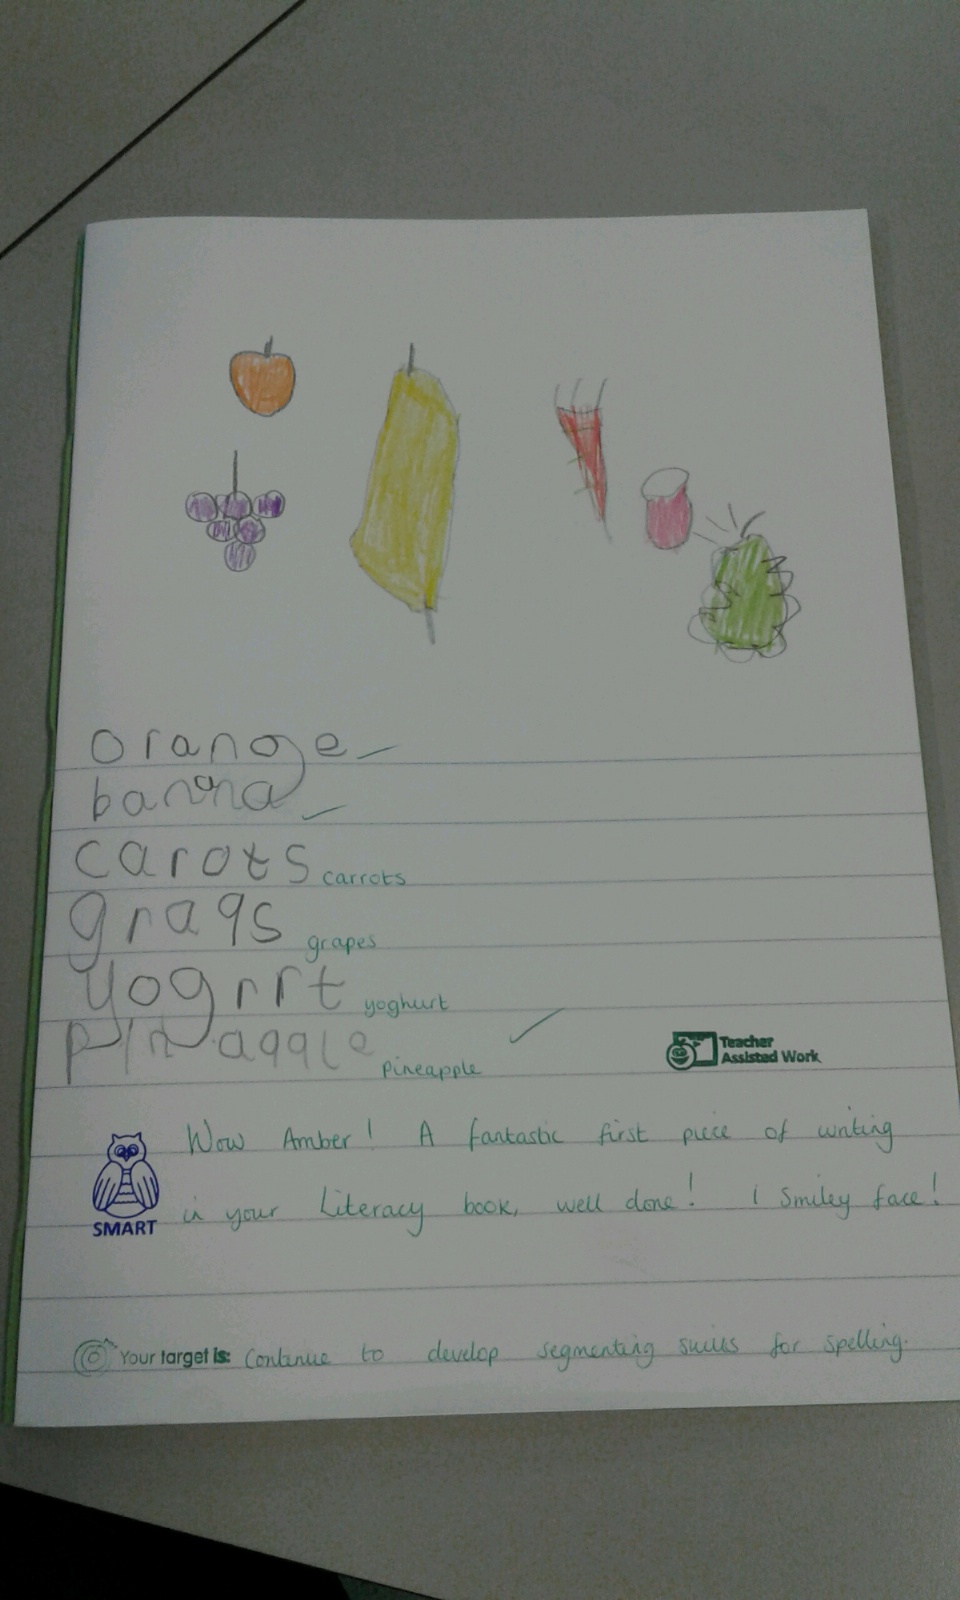 orange
banana
carots carrots
graqs grapes
yogrrt yoghurt
pinaqqle pineapple
Teacher
Assisted Work
Wow Amber! A fantastic first piece of writing
in your Literacy book, well done! 1 Smiley face!
SMART
Your target is: Continue to develop segmenting skills for spelling.